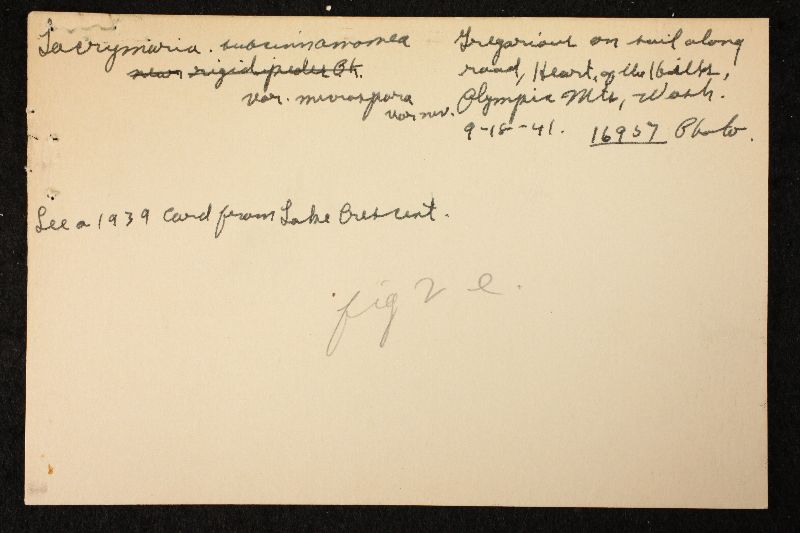 Lacrymaria subcinnamomea
near rigidipedes Pk.
var. microspora
var nov.
Gregarious on soil along
road, Heart of the Hills,
Olympic Mts, Wash.
9-18-41. 16957 Photo.
See a 1939 card from Lake Crescent.
fig 2 e.